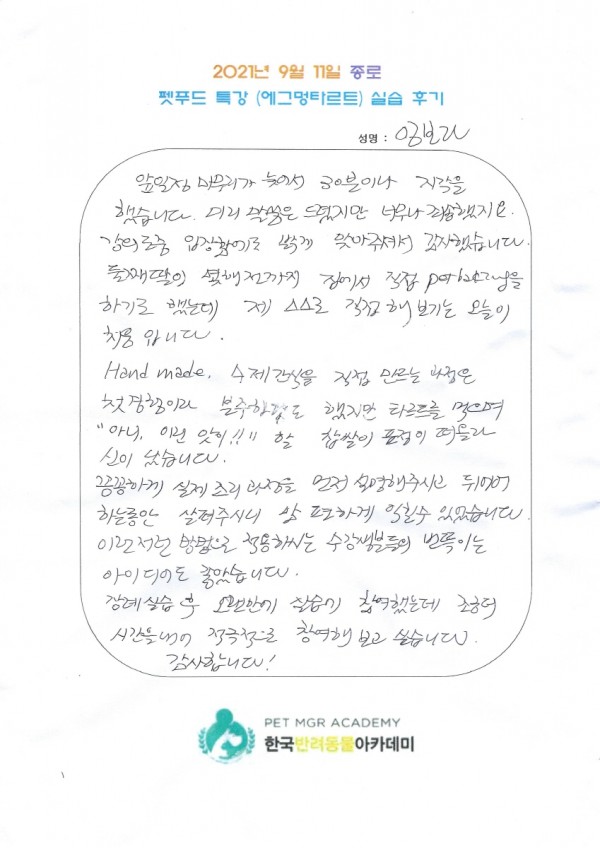 2021년 9월 11일 종로
펫푸드 특강 (에그멍타르트) 실습 후기
성명 : 임보라
앞일정 마무리가 늦어서 30분이나 지각을
했습니다. 미리 말씀은 드렸지만 너무나 죄송했지요.
강의도중 입장함에도 밝게 맞아주셔서 감사했습니다.
둘째딸이 몇해전까지 집에서 직접 을
하기도 했는데 제 스스로 직접 해보기는 오늘이
처음 입니다.
Hand made. 수제간식을 직접 만드는 과정은
첫경험이라 분주하기도 했지만 타르트를 먹으며
"아니, 이런 맛이!!" 할 찹쌀이 표정이 떠올라
신이 났습니다.
꼼꼼하게 실제 조리과정을 먼저 설명해주시고 뒤이어
하는동안 살펴주시니 맘 편하게 익힐수 있었습니다.
이런저런 방법으로 적용하시는 수강생분들의 번뜩이는
아이디어도 좋았습니다.
장례실습 후 오랜만에 실습에 참여했는데 조금더
시간을내어 적극적으로 참여해 보고 싶습니다.
감사합니다!
PET MGR ACADEMY
한국반려동물아카데미